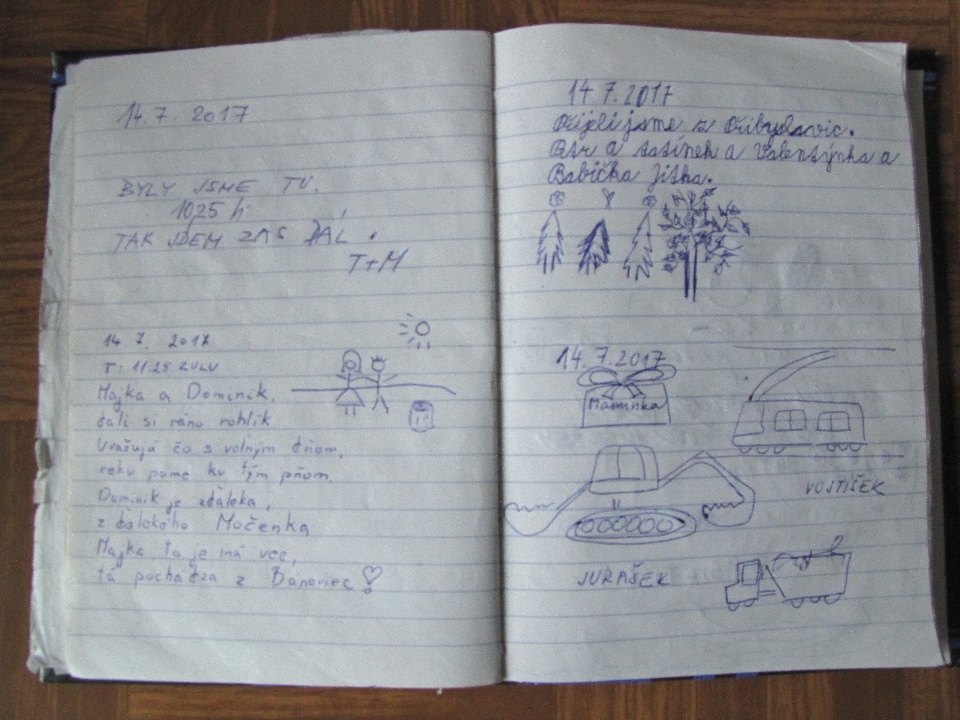 14.7. 2017
BYLY JSME TU.
1025 h
TAK JDEM ZAS DÁL.
T+M
14.7. 2017
T: 11:25 ZULU
Majka a Dominik,
dali si ráno rohlík
Uvažujú čo s volným dňom,
reku pome ku tým pňom.
Dominik je zďaleka,
z ďalekého Močenka
Majka to je iná vec,
tá pochádza z Bánoviec!
14.7.2017
Přijeli jsme z Přibyslavic.
Petr a tatínek a Valentýnka a
Babička Jitka.
14.7.2017
Maminka
VOJTÍŠEK
JURÁŠEK